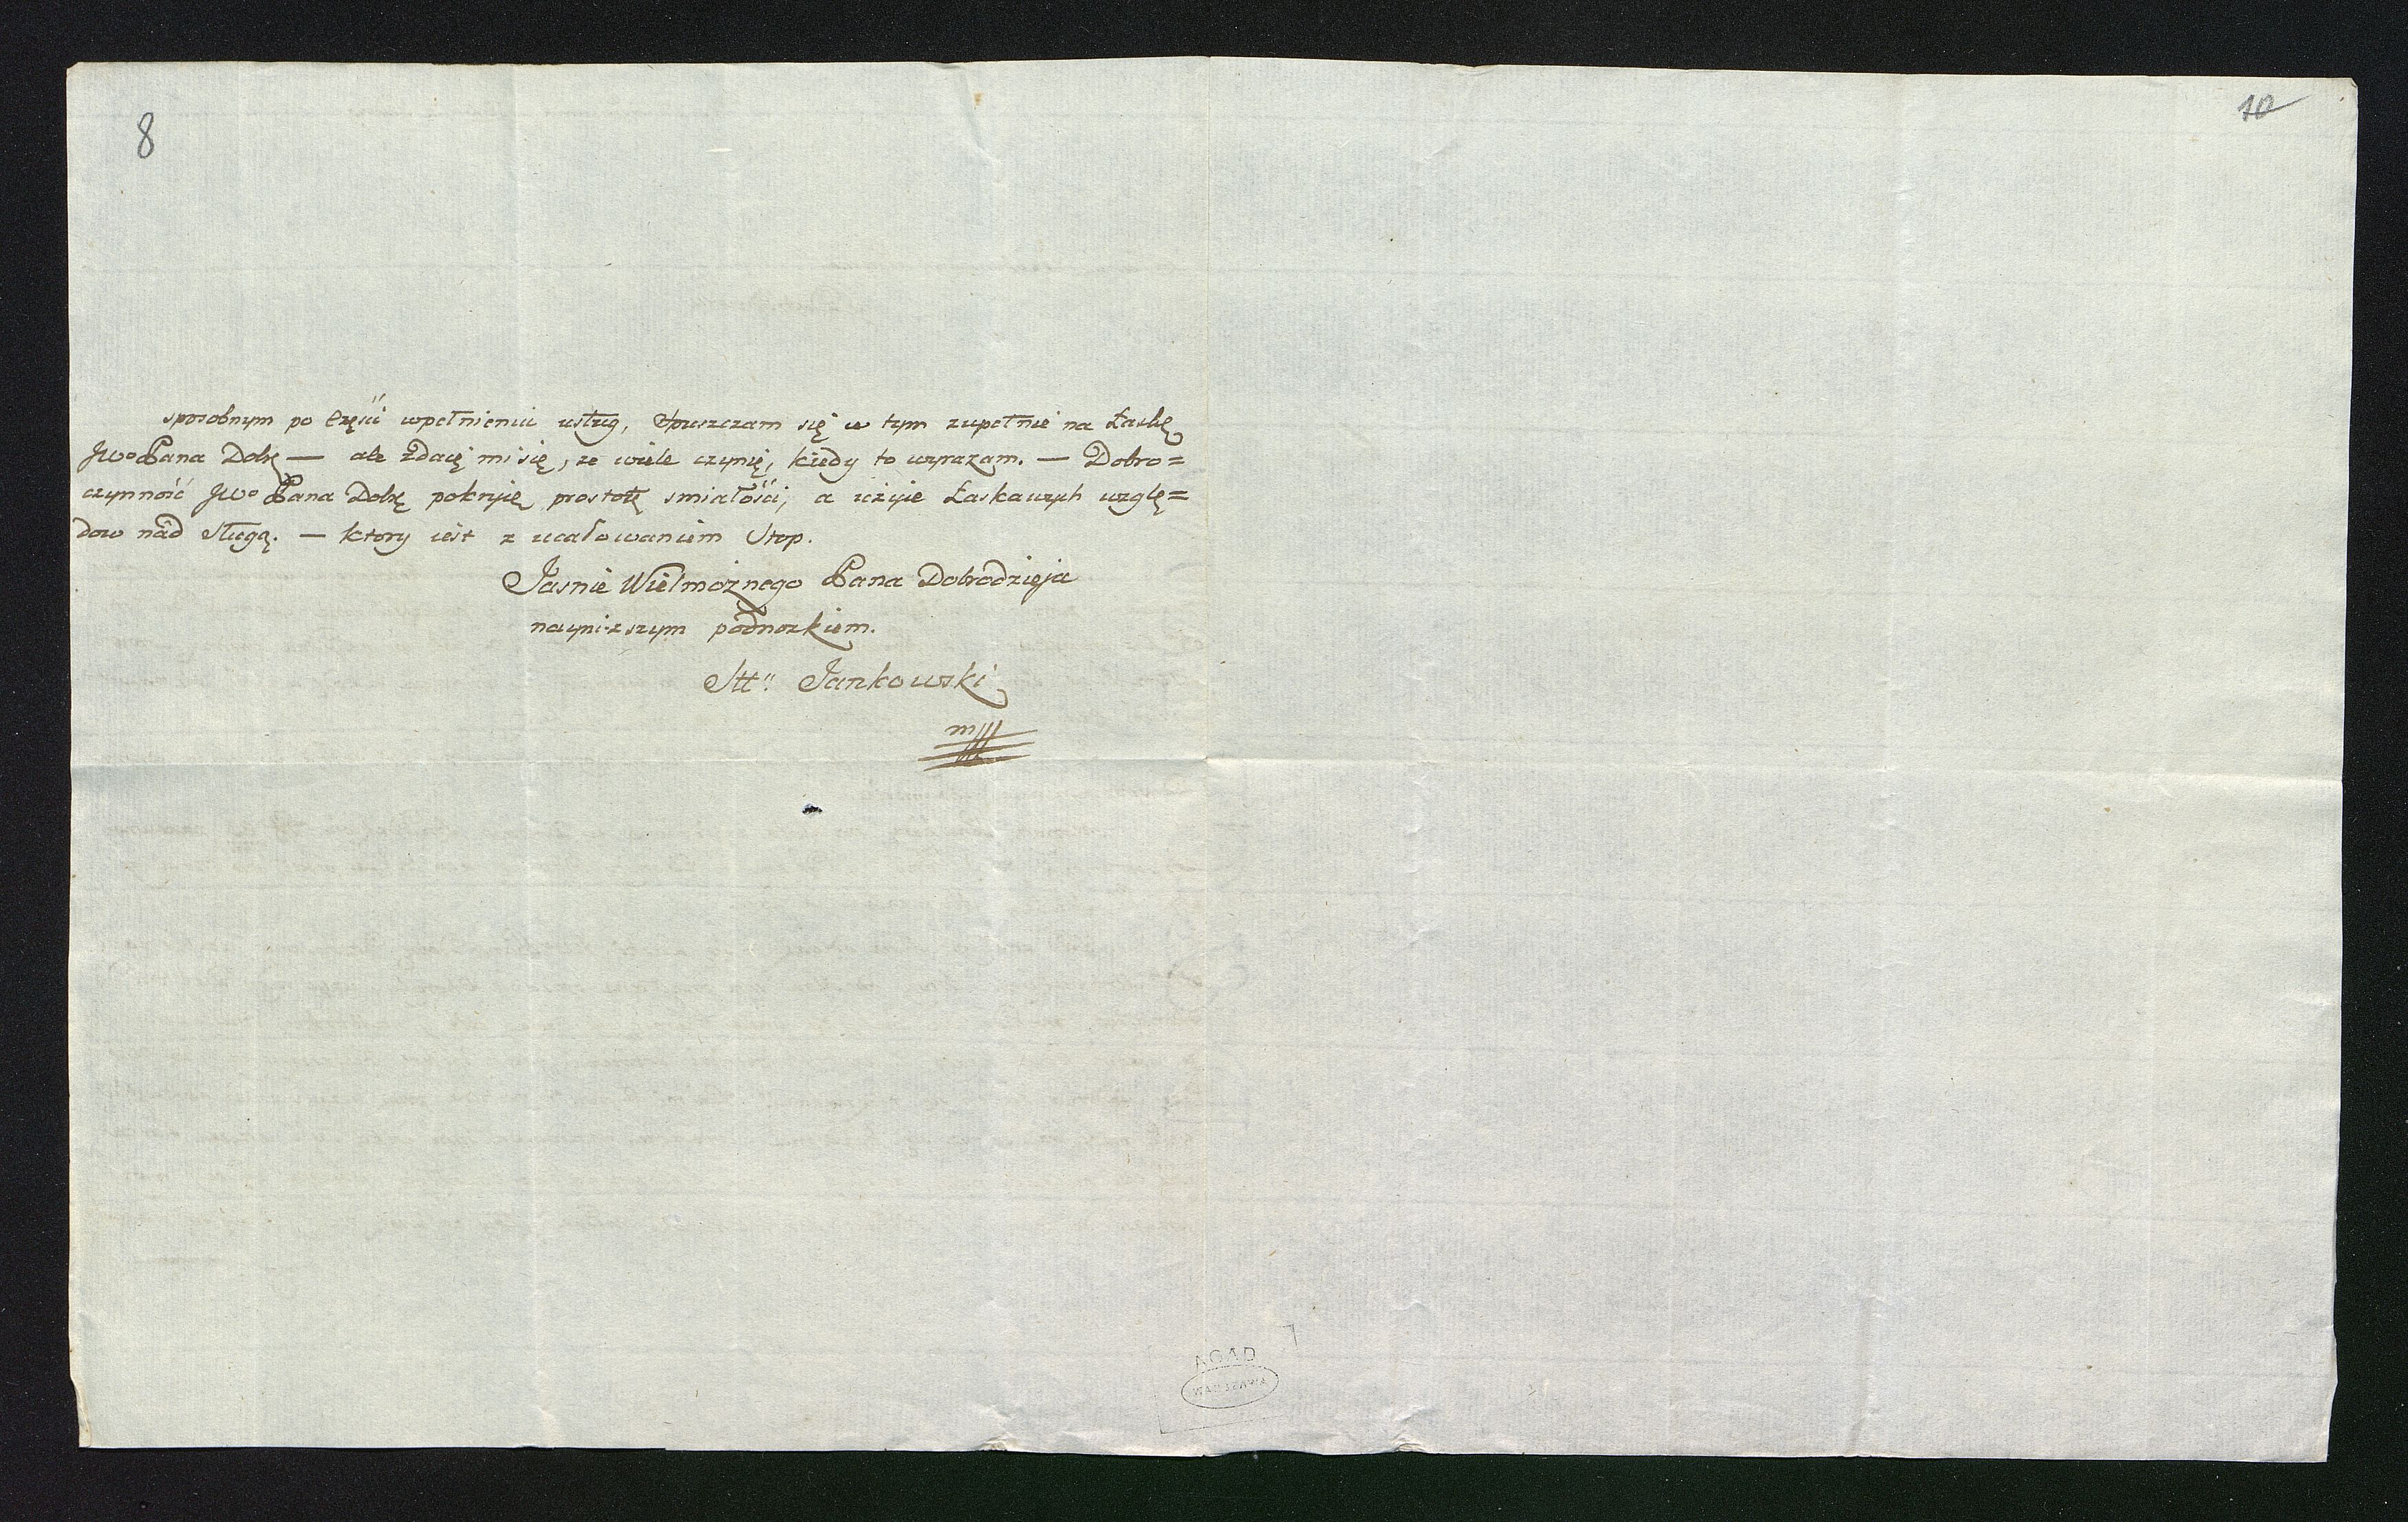 8
10
sposobnym po częsci wpełnieniu usług, spuszczam się w tym zupełnie na Łaskę
JWo Pana Dobrę — ale zdaię mi się, ze wiele czynię, kiedy to wyrazam. — Dobro=
czynność JWo Pana Dobrę pokryię prostotę smiałości, a użyie Łaskawych wzglę=
dow nad sługą. — ktory iest z ucałowaniem Stop.
Jasnie Wielmożnego Pana Dobrodzieja
nayniższym podnozkiem.
Jankowski
AGAD
WARSZAWA